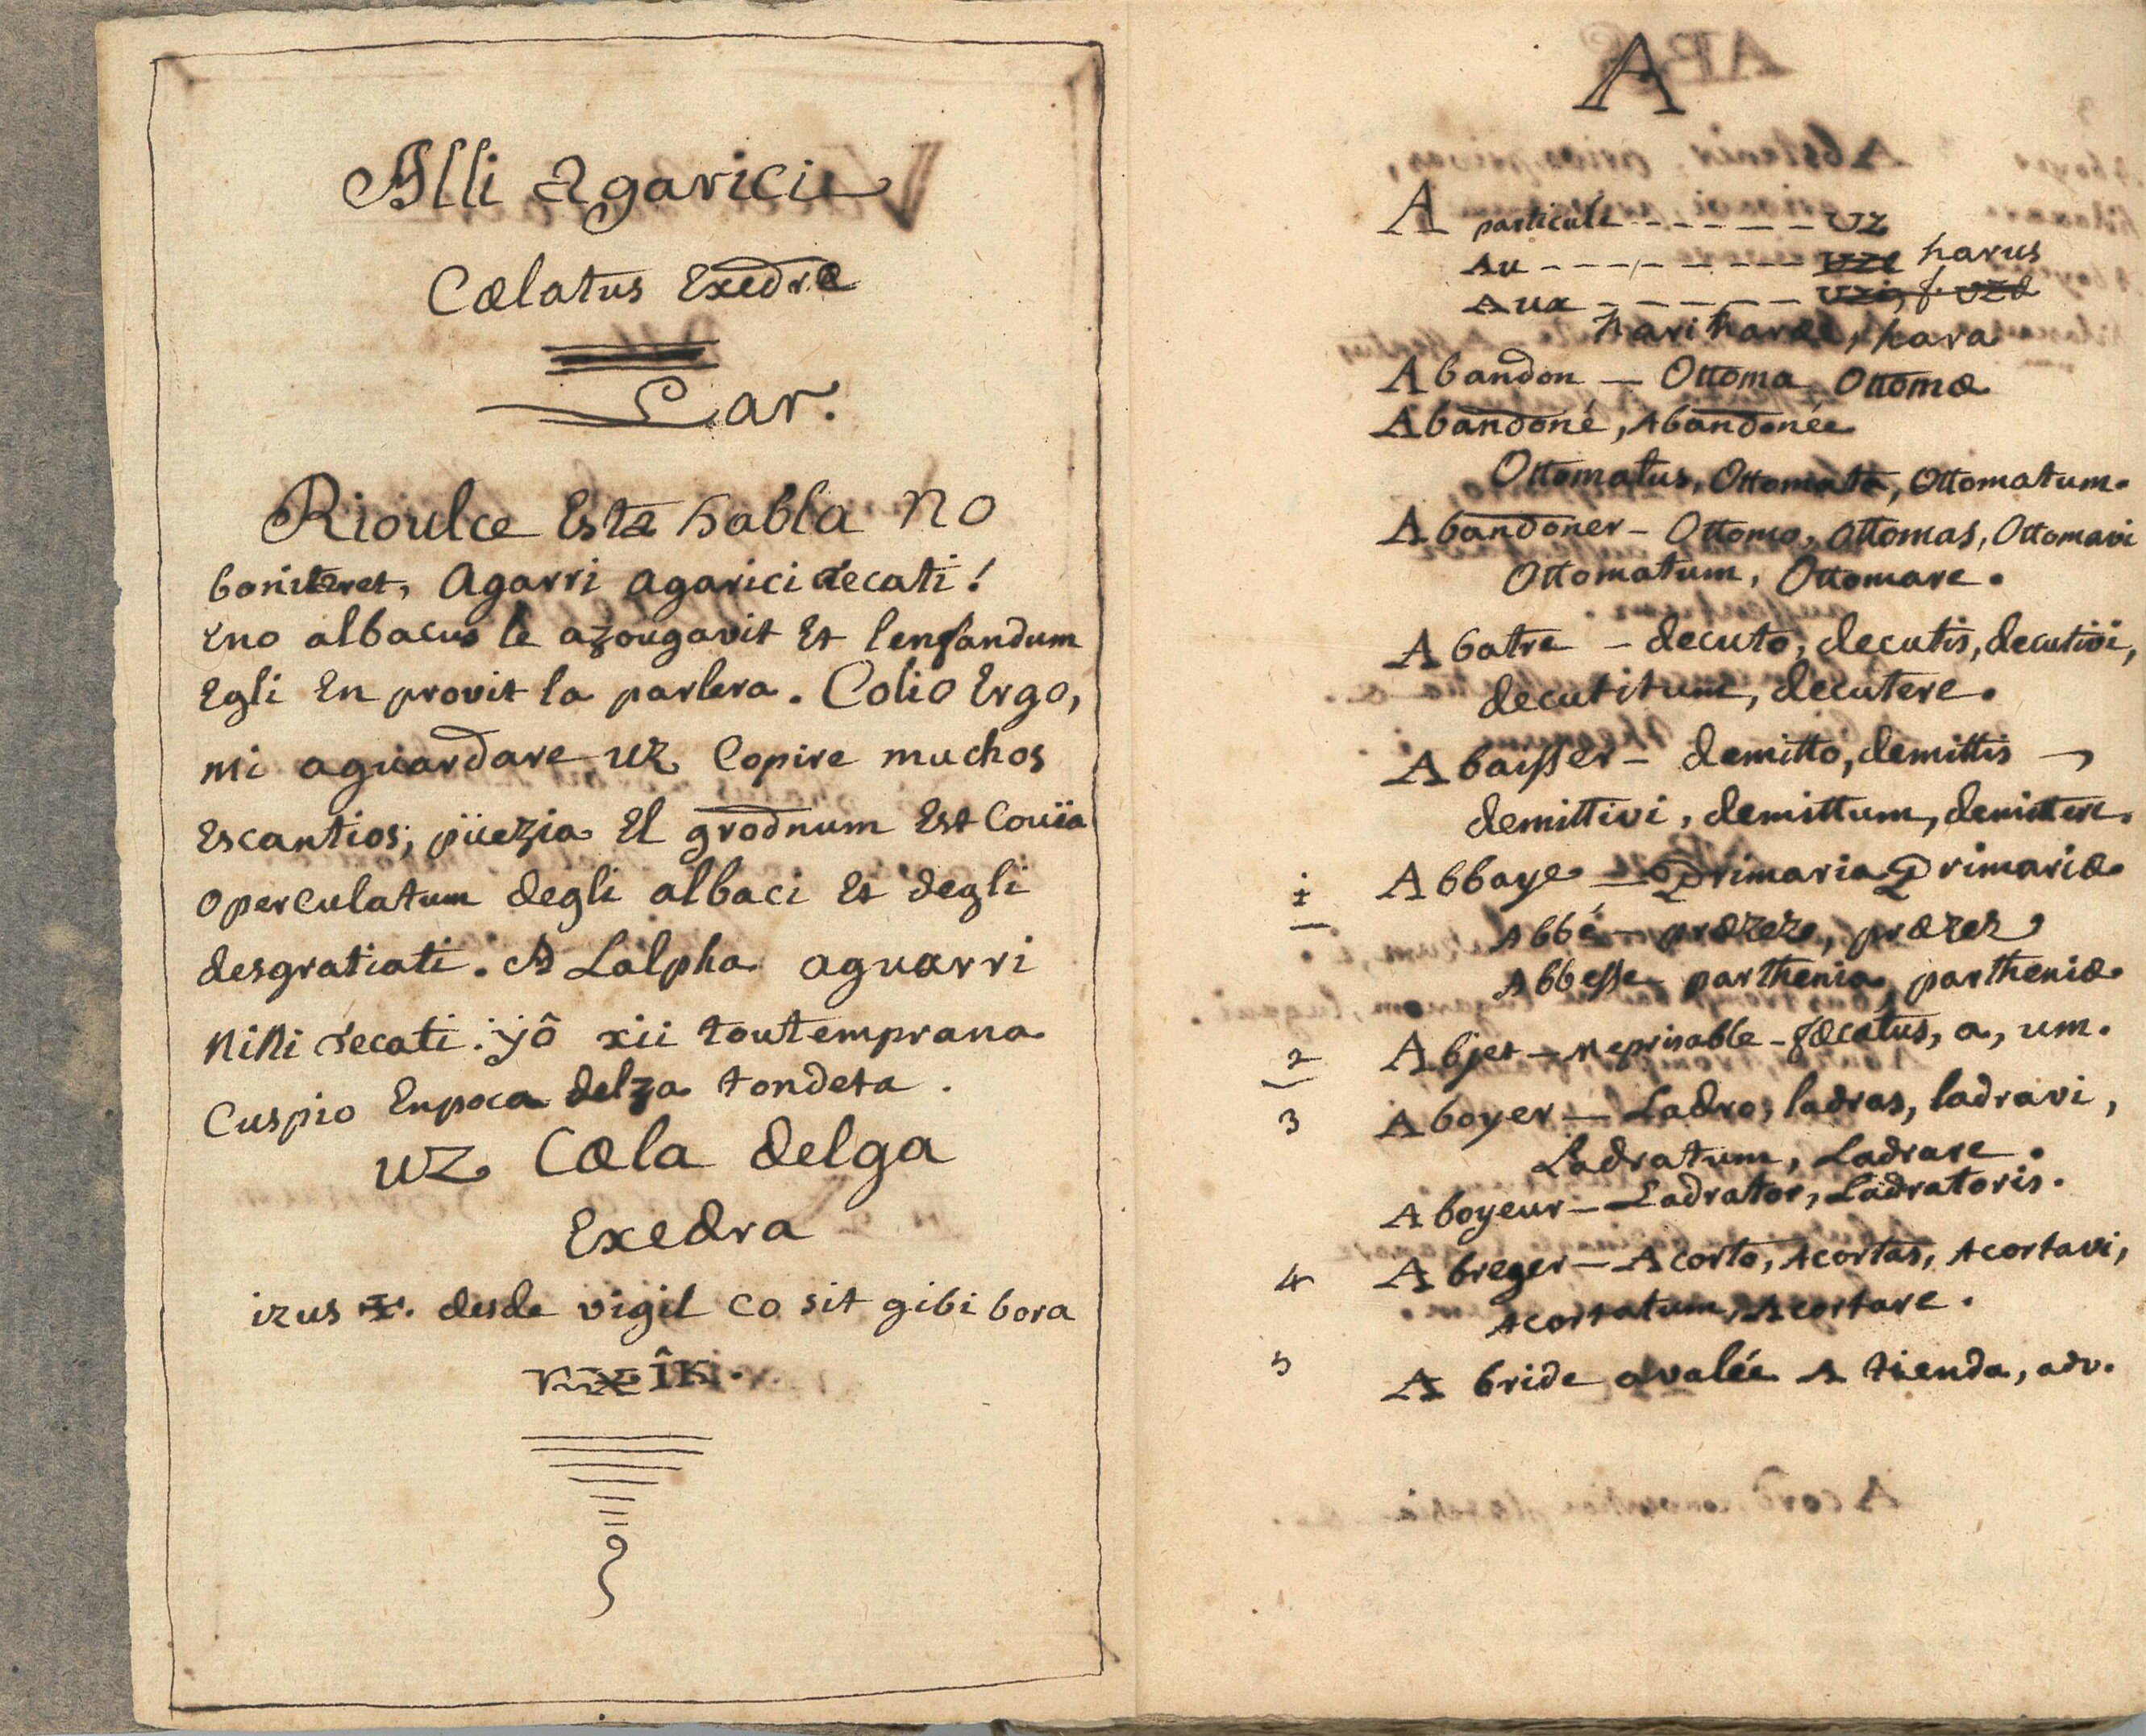 Alli Agaricii
Cælatus Exedræ
Lar.
Rioulce Esta habla no
boniteret, Agarri agarici decati!
Eno albacus le azougavit Et lenfandum
Egli En provit la parlera. Colio Ergo,
mi aguardare uz Copire muchos
Escantios; püezia El grodnum Est Couïa
operculatum degli albaci Et degli
desgratiati. A Lalpha aguarri
nini decati: jô xii toutemprana
Cuspio Enpoca delza tondeta.
uz Cæla delga
Exedra
izus desde vigil co sit gibi bora
îk.
A
A particule - - - - - - UZ
Au - - - - - - - - - uze harus
Aux - - - - - - uzi, f. uza
hari haræ, hara
Abandon — Ottoma, Ottomæ
Abandoné, Abandonée
Ottomatus, Ottomata, Ottomatum.
Abandoner - Ottomo, Ottomas, Ottomavi
Ottomatum, Ottomare.
Abatre - decuto, decutis, decutivi,
decutitum, decutere.
Abaisser - demitto, demittis
demittivi, demittum, demittere.
1 Abbaye — Primaria Primariæ
Abbé — præzeze, præzez
Abbesse parthenia, partheniæ
2 Abjet — meprisable - fæcatus, a, um.
3 Aboyer — Ladro, ladras, ladravi,
Ladratum, Ladrare.
Aboyeur — Ladrator, Ladratoris.
4 Abreger — Acorto, Acortas, Acortavi,
Acortatum, Acortare.
5 A bride avalée A tienda, adv.